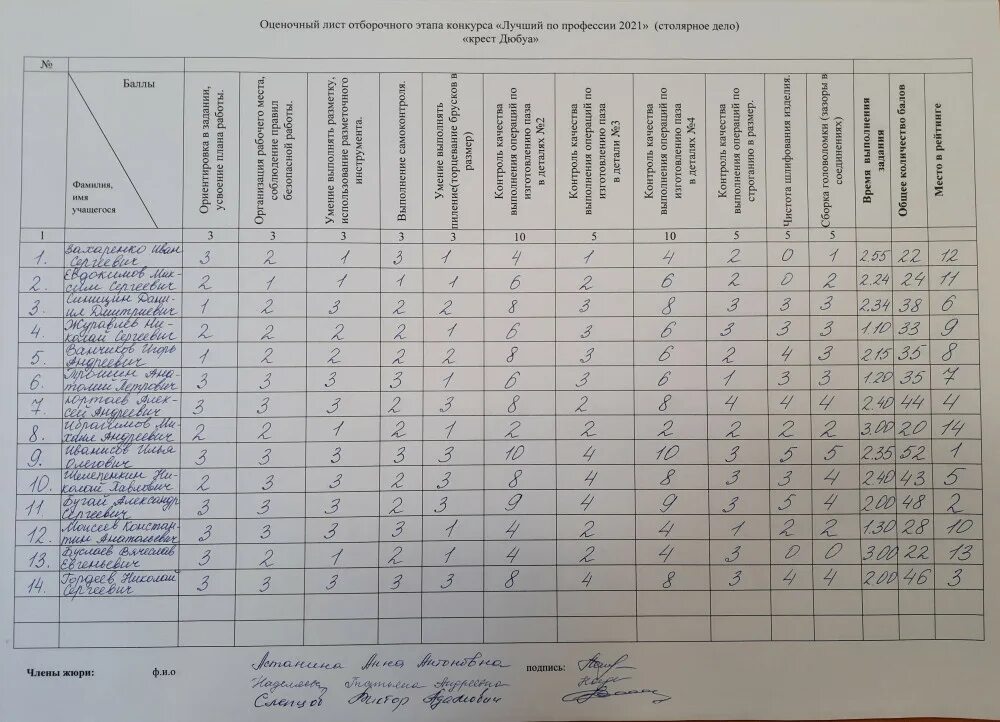 Оценочный лист отборочного этапа конкурса «Лучший по профессии 2021» (столярное дело)
«крест Дюбуа»
№
Баллы
Фамилия,
имя
учащегося
Ориентировка в задании,
усвоение плана работы.
Организация рабочего места,
соблюдение правил
безопасной работы.
Умение выполнять разметку,
использование разметочного
инструмента.
Выполнение самоконтроля.
Умение выполнять
пиление(торцевание брусков в
размер)
Контроль качества
выполнения операций по
изготовлению паза
в деталях №2
Контроль качества
выполнения операций по
изготовлению паза
в детали №3
Контроль качества
выполнения операций по
изготовлению паза
в деталях №4
Контроль качества
выполнения операций по
строганию в размер.
Чистота шлифования изделия.
Сборка головоломки (зазоры в
соединениях)
Время выполнения
задания
Общее количество балов
Место в рейтинге
1 3 3 3 3 3 10 5 10 5 5 5
1. Захаренко Иван Сергеевич 3 2 1 3 1 4 1 4 2 0 1 2.55 22 12
2. Евдокимов Мик-сим Сергеевич 2 1 1 1 1 6 2 6 2 0 2 2.24 24 11
3. Синицин Дани-ил Дмитриевич 1 2 3 2 2 8 3 8 3 3 3 2.34 38 6
4. Журавлев Ни-колай Сергеевич 2 2 2 2 1 6 3 6 3 3 3 1.10 33 9
5. Ванчиков Игорь Андреевич 1 2 2 2 2 8 3 6 2 4 3 2.15 35 8
6. Трошин Ана-толий Петрович 3 3 3 3 1 6 3 6 1 3 3 1.20 35 7
7. Юртаев Алек-сей Андреевич 3 3 3 2 3 8 2 8 4 4 4 2.40 44 4
8. Ибрагимов Ми-хаил Андреевич 2 2 1 2 1 2 2 2 2 2 2 3.00 20 14
9. Иванисов Илья Олегович 3 3 3 3 3 10 4 10 3 5 5 2.35 52 1
10. Шелепенкин Ни-колай Павлович 2 3 3 2 3 8 4 8 3 3 4 2.40 43 5
11. Бугай Александр Сергеевич 3 3 3 2 3 9 4 9 3 5 4 2.00 48 2
12. Моисеев Констан-тин Анатольевич 3 3 3 3 1 4 2 4 1 2 2 1.30 28 10
13. Буслаев Вячеслав Евгеньевич 3 2 1 2 1 4 2 4 3 0 0 3.00 22 13
14. Гордеев Николай Сергеевич 3 3 3 3 3 8 4 8 3 4 4 2.00 46 3
Члены жюри: ф.и.о Астанина Анна Антоновна подпись:
Татьяна Андреевна
Слепцов Виктор Адамович